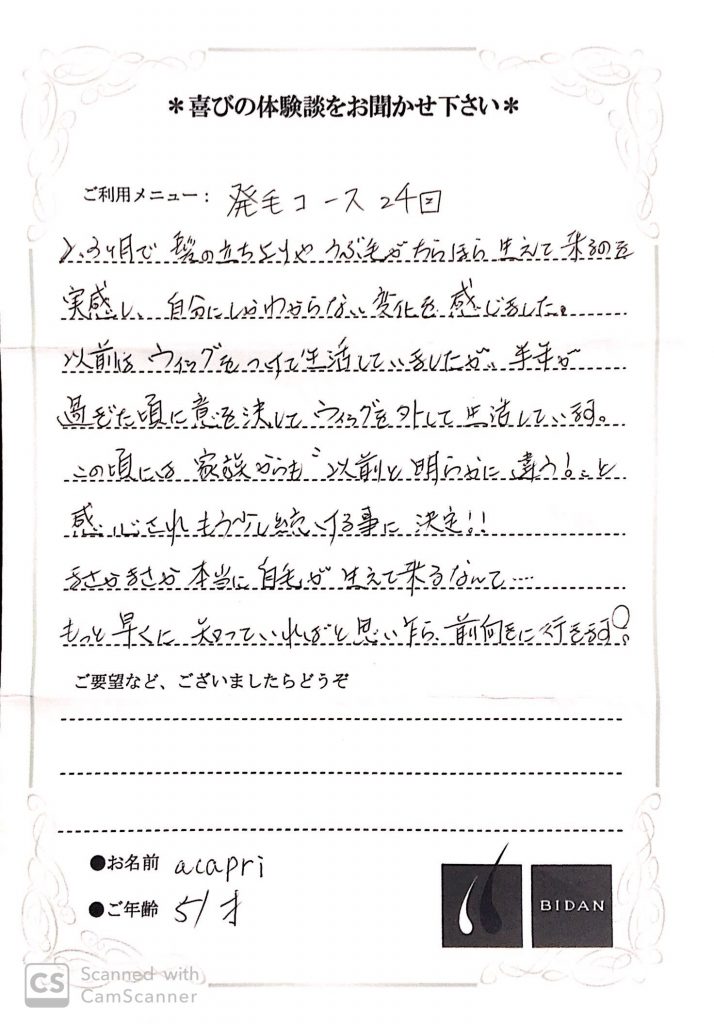 ＊喜びの体験談をお聞かせ下さい＊
ご利用メニュー： 発毛コース 24回
2、3ヶ月で 髪の立ち上りや うぶ毛がちらほら 生えて来るのを
実感し、自分にしかわからない変化を感じました。
以前は ウィッグをつけて生活していましたが、半年が
過ぎた頃に意を決して ウィッグを外して 生活しています。
この頃には 家族からも"以前と明らかに違う！"と
感心され もう少し続ける事に 決定!!
まさかまさか 本当に 自毛が 生えて来るなんて…
もっと 早くに 知っていればと 思い乍ら、前向きに行きます。
ご要望など、ございましたらどうぞ
●お名前 acapri
●ご年齢 51才
BIDAN
CS Scanned with
CamScanner